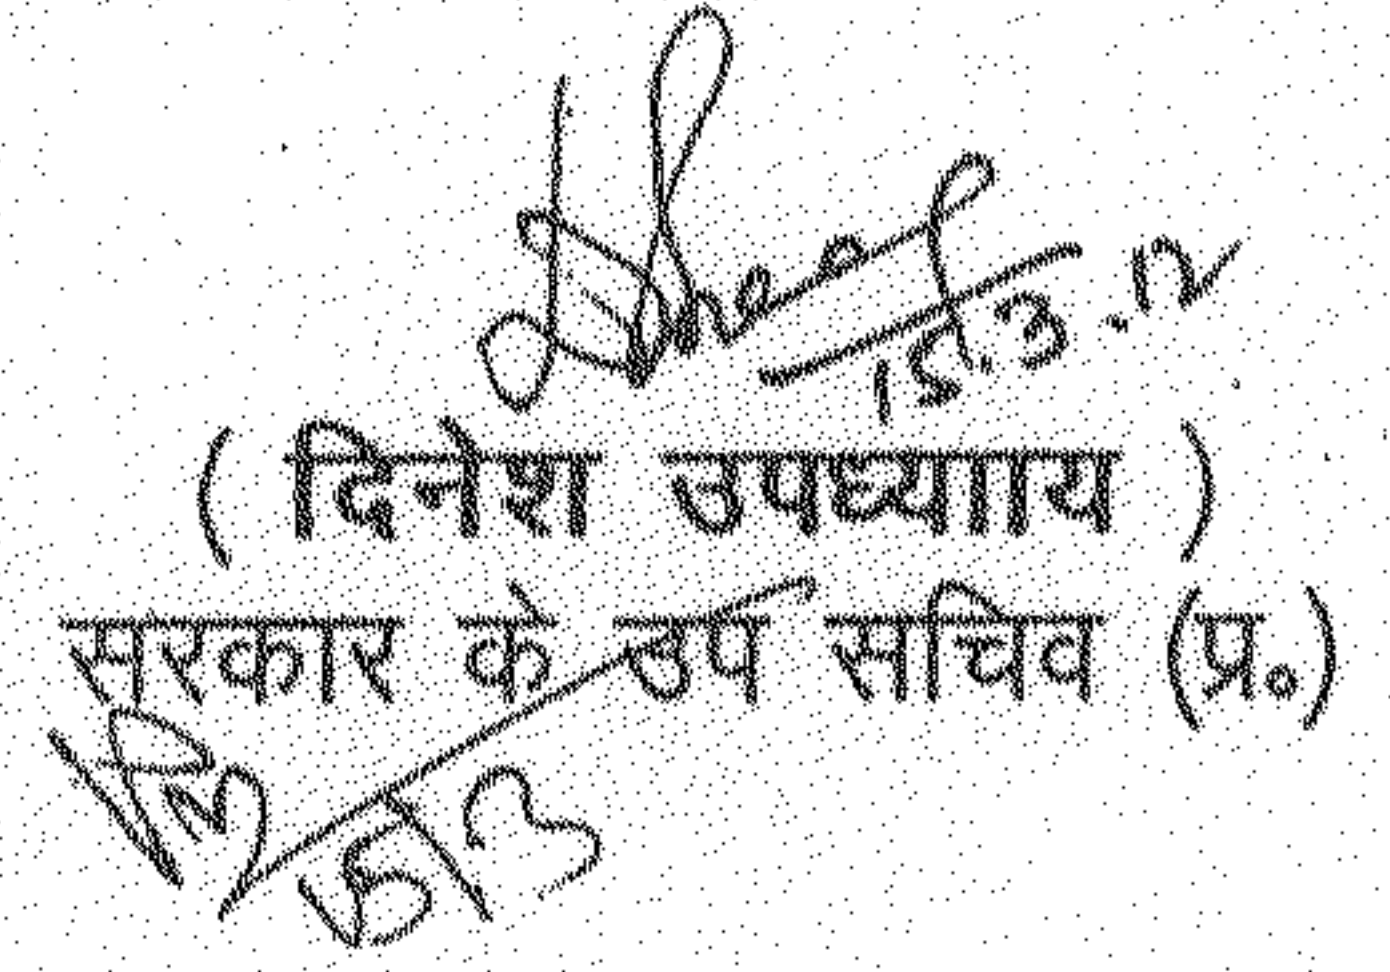 15.3.12
( दिनेश उपध्यााय )
सरकार के उप सचिव (प्र०)
15/3